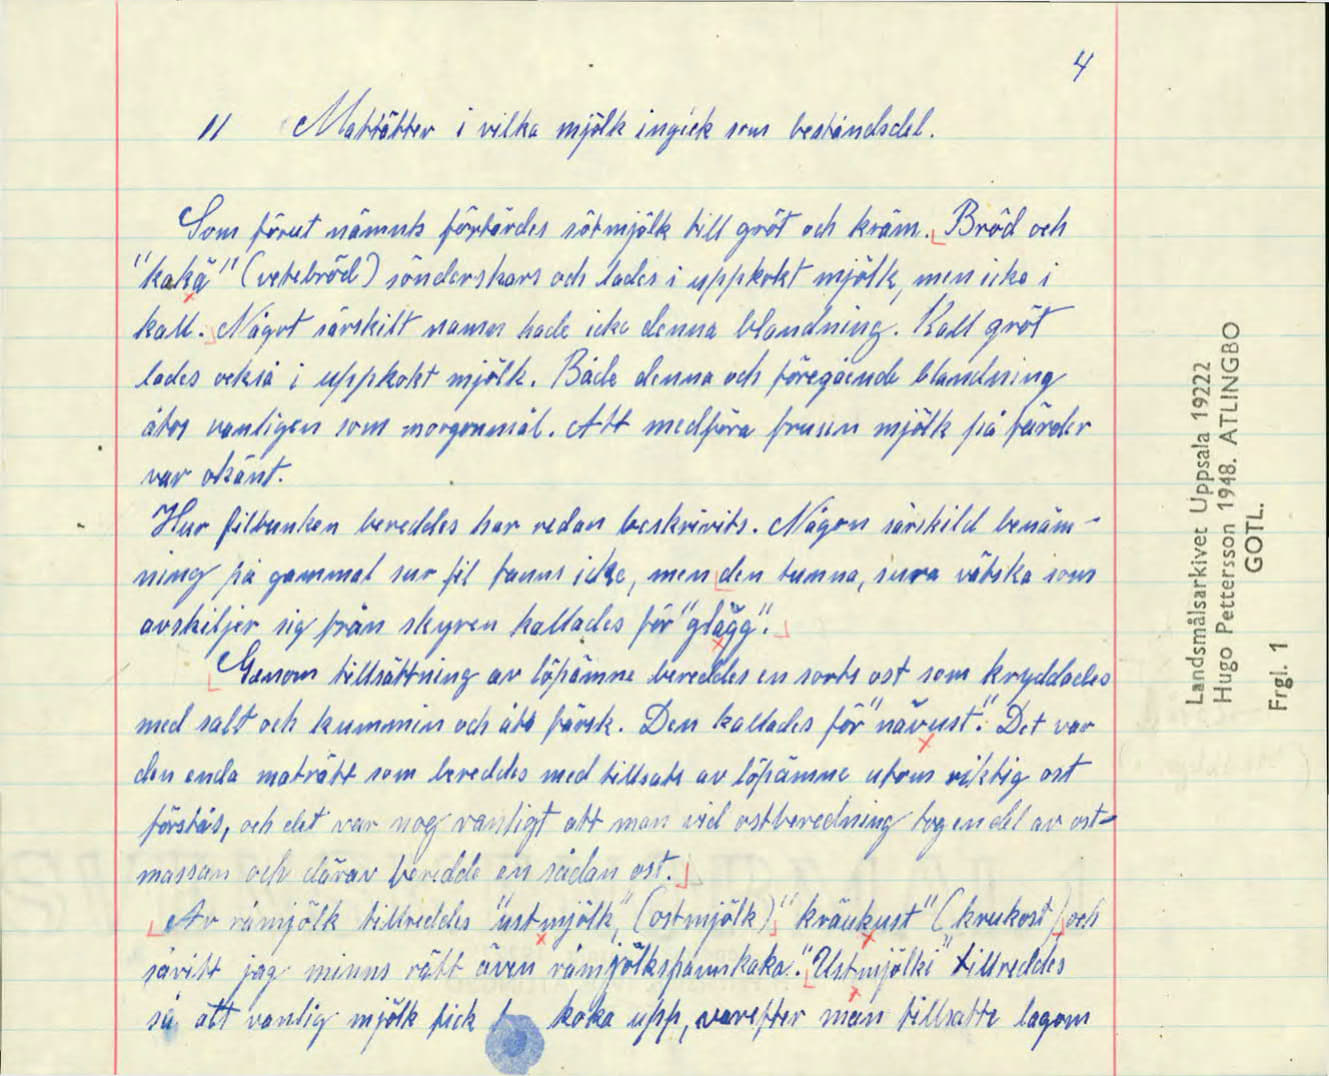 4
11 Maträtter i vilka mjölk ingick som beståndsdel.
Som förut nämnts förtärdes sötmjölk till gröt och kräm. Bröd och
"kakå" (vetebröd) sönderskars och lades i uppkokt mjölk, men icke i
kall. Något särskilt namn hade icke denna blandning. Kall gröt
lades också i uppkokt mjölk. Både denna och föregående blandning
åtos vanligen som morgonmål. Att medföra frusen mjölk på färder
var okänt.
Hur filbunken bereddes har redan beskrivits. Någon särskild benäm-
ning på gammal sur fil fanns icke, men den tunna, sura vätska som
avskiljer sig från skyren kallades för "glägg".
Genom tillsättning av löpämne bereddes en sorts ost som kryddades
med salt och kummin och åts färsk. Den kallades för "nävust". Det var
den enda maträtt som bereddes med tillsats av löpämne utom riktig ost
förstås, och det var nog vanligt att man vid ostberedning tog en del av ost-
massan och därav beredde en sådan ost.
Av råmjölk tillreddes "ustmjölk", (ostmjölk) "kräukust" (krukost) och
såvitt jag minns rätt även råmjölkspannkaka. "Ustmjölki" tillreddes
så att vanlig mjölk fick koka upp, varefter man tillsatte lagom
Landsmålsarkivet Uppsala 19222
Hugo Pettersson 1948. ATLINGBO
GOTL.
Frgl. 1